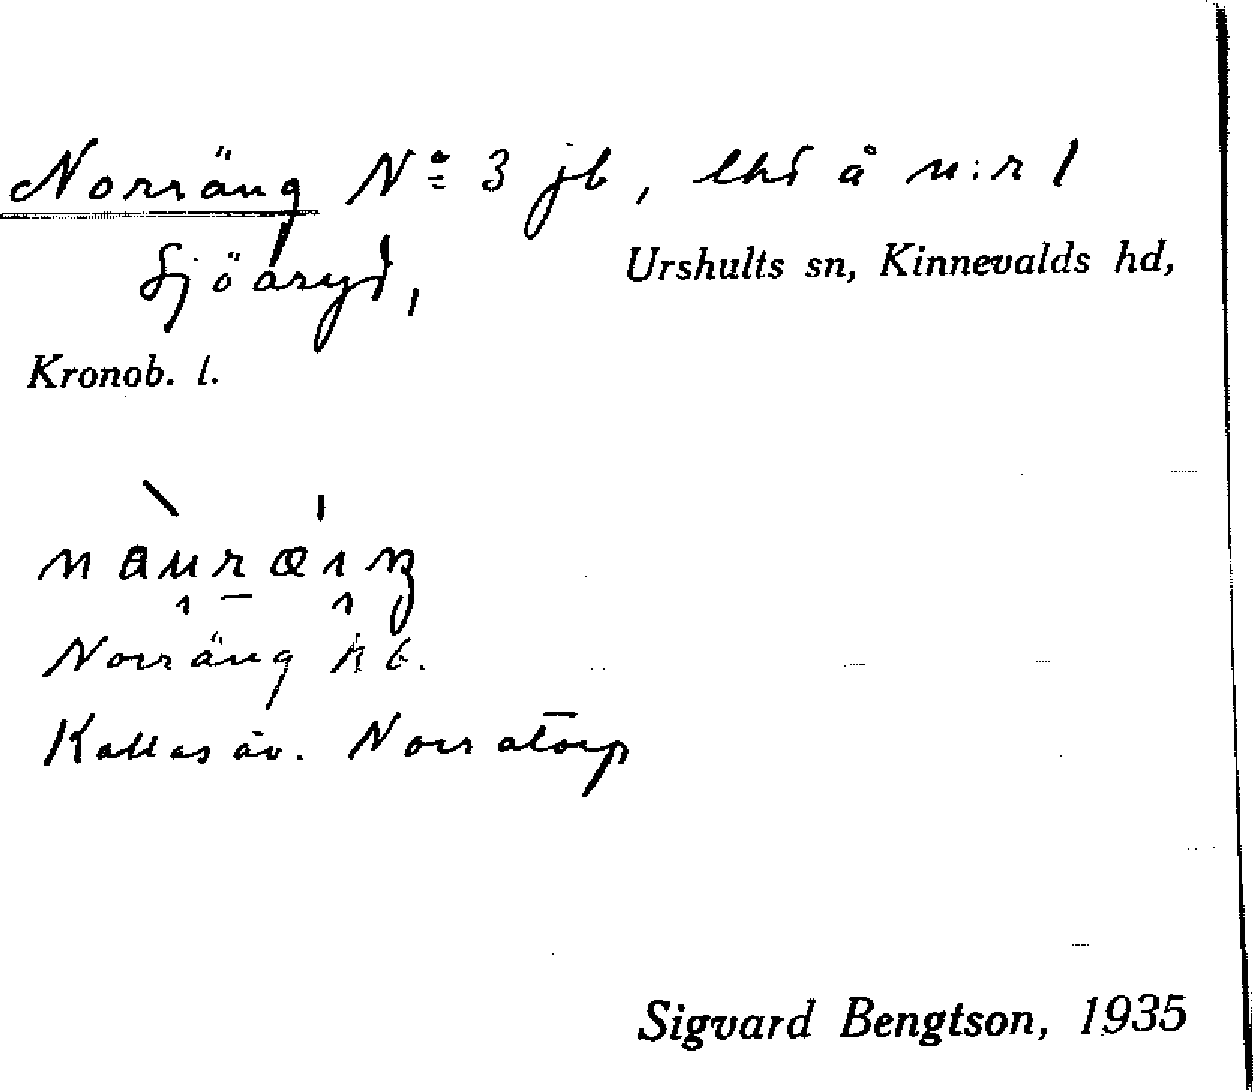 Norräng Nº 3 jb, lhd å n:r 1
Sjöaryd,
Urshults sn, Kinnevalds hd,
Kronob. l.
Norräng kb.
Kallas äv. Norratorp
Sigvard Bengtson, 1935